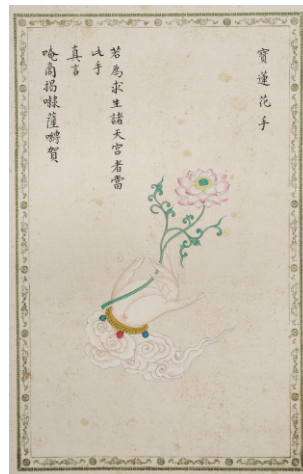 寶蓮花手
若為求生諸天宮者當
此手
真言
唵商揭㘑薩嚩賀